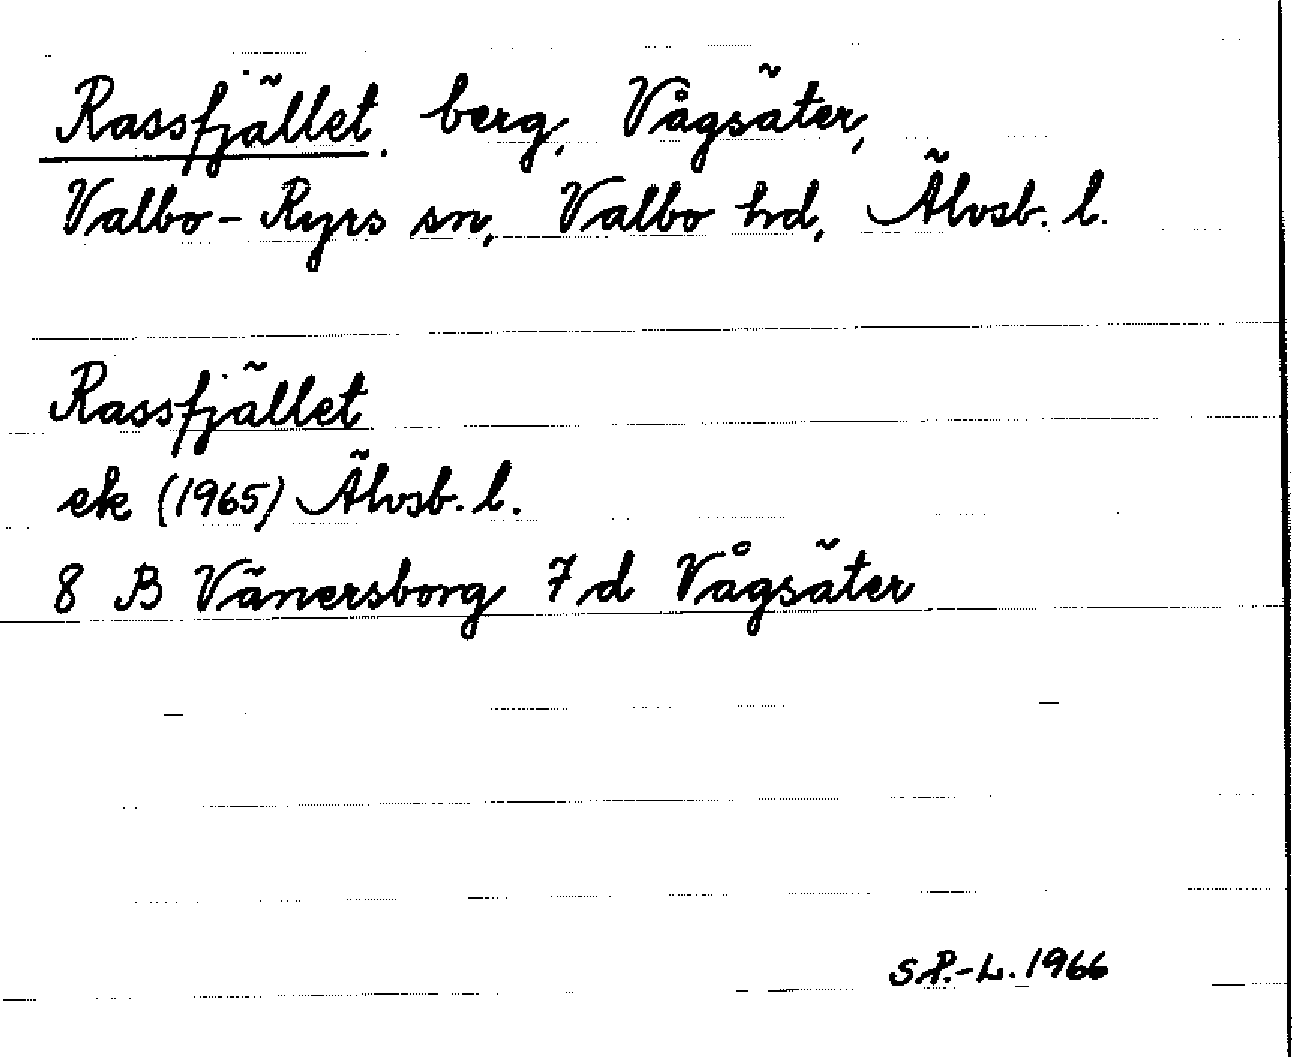 Rassfjället, berg, Vågsäter,
Valbo-Ryrs sn, Valbo hd, Älvsb. l.
Rassfjället
ek (1965) Älvsb. l.
8 B Vänersborg 7 d Vågsäter
S.P.-L. 1966